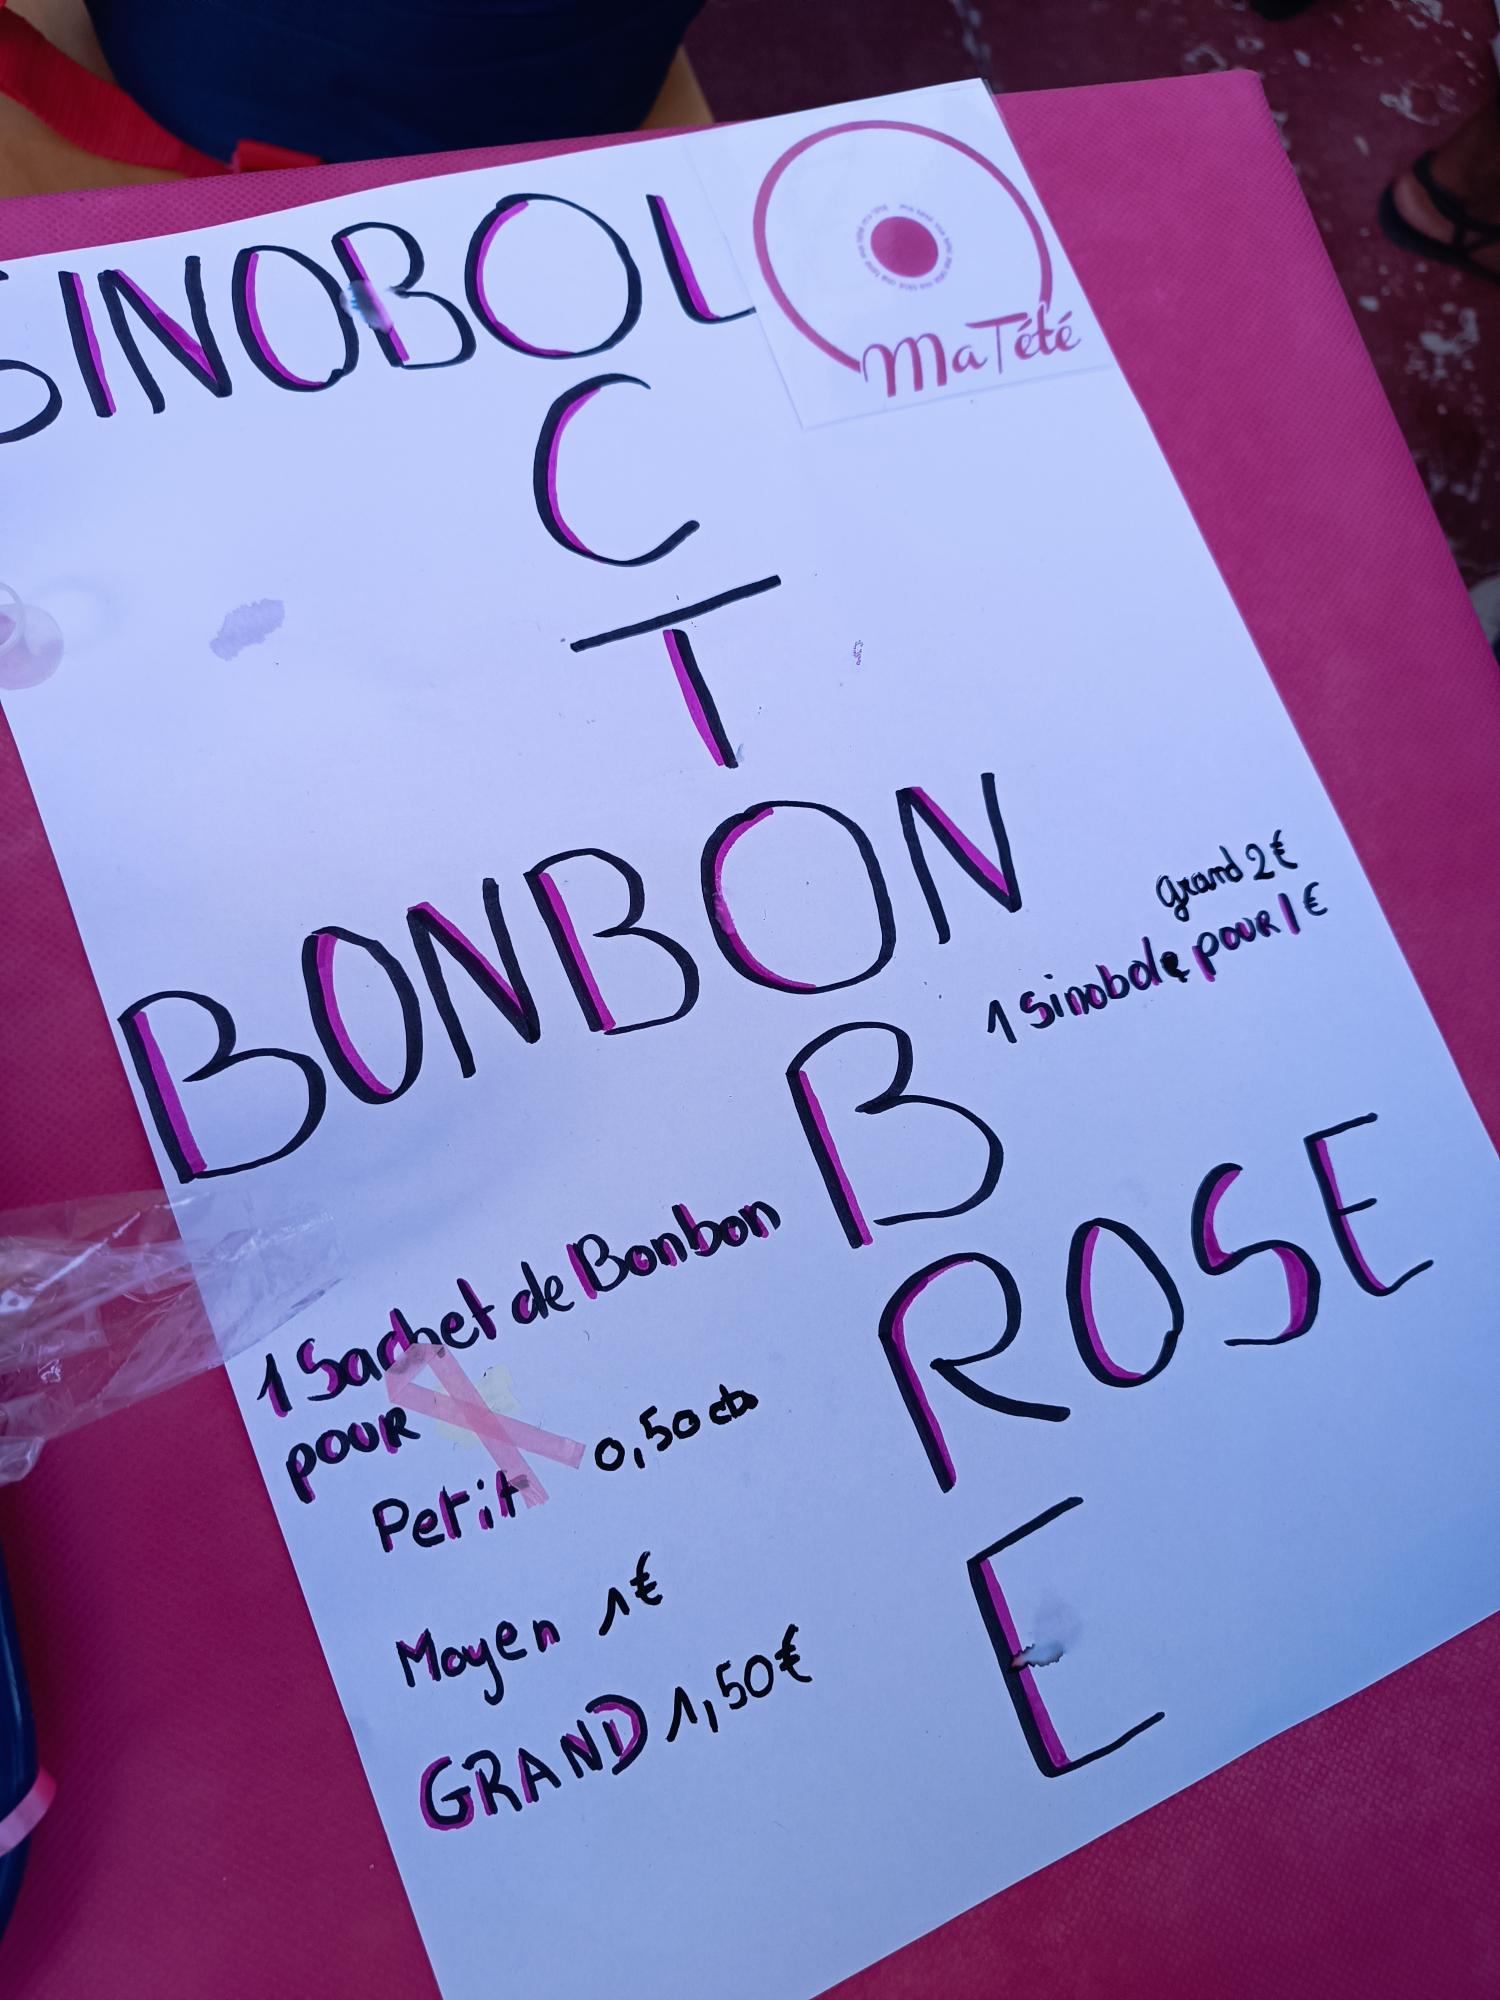 SINOBOL
Ma Tété
C
T
BONBON
grand 2€
1 Sinobole pour 1€
B
1 Sachet de Bonbon
pour
ROSE
Petit 0,50 cts
E
Moyen 1€
GRAND 1,50€